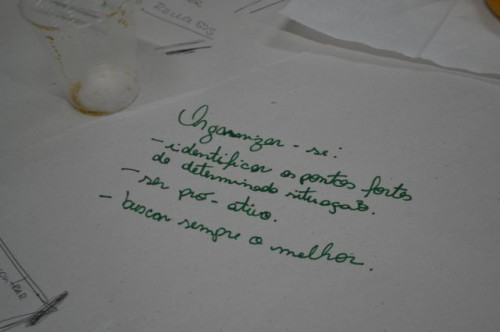 Organizar-se:
- identificar os pontos fortes
de determinada situação.
- ser pró-ativo.
- buscar sempre o melhor.